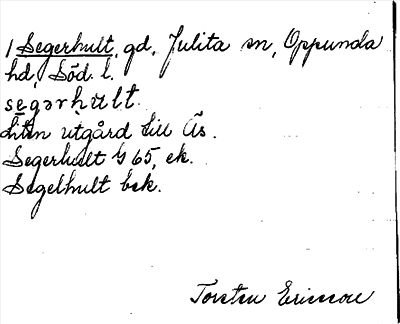 1 Segerhult, gd, Julita sn, Oppunda
hd, Söd. l.
segərhult.
Liten utgård till Ås.
Segerhult G 65, ek.
Segelhult bek.
Torsten Ericson